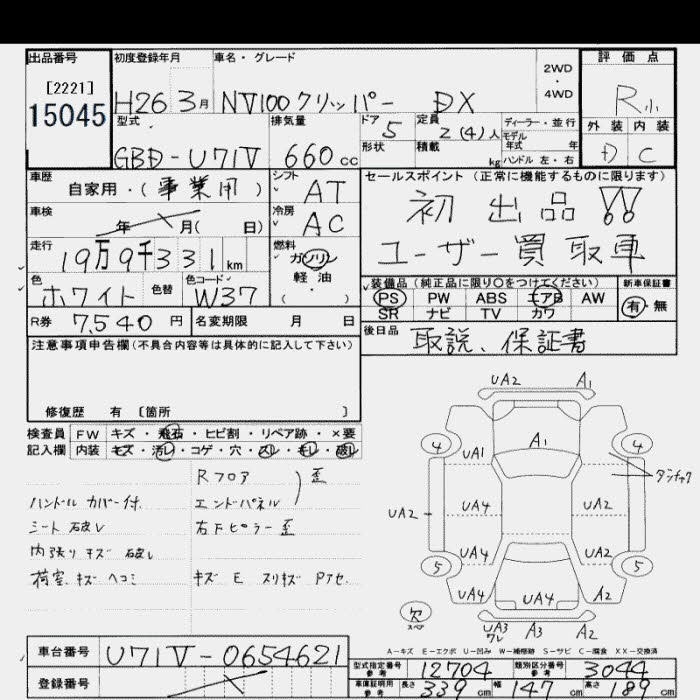 出品番号
[2221]
15045
初度登録年月
H26 3月
車名・グレード
NV100クリッパー DX
2WD
・
4WD
評価点
R小
外装 内装
D C
型式
GBD-U71V
排気量
660cc
ドア
5
形状
定員
2(4)人
積載 kg
ディーラー・並行
モデル
年式 年
ハンドル 左・右
車歴
自家用・(事業用)
シフト
AT
車検
年 月( 日)
冷房
AC
走行
19万9千331km
燃料
ガソリン
軽油
( ・ )
色
ホワイト
色替
色コード
W37
R券 7,540円
名変期限 月 日
セールスポイント(正常に機能するものに限ります)
初出品!!
ユーザー買取車
装備品(純正品に限り○をつけてください)
PS PW ABS エアB AW
SR ナビ TV カワ
新車保証書
有・無
後日品
取説、保証書
注意事項申告欄(不具合内容等は具体的に記入して下さい)
修復歴 有 〔箇所 〕
検査員
記入欄
FW キズ・飛石・ヒビ割・リペア跡・×要
内装 キズ・汚レ・コゲ・穴・スレ・キレ・破レ
ハンドルカバー付.
シート破レ
内張りキズ 破レ
荷室.キズ ヘコミ
Rフロア
エンドパネル
歪
右Fピラー歪
キズ E スリキズ Pアセ.
UA2 A1
4 4
A1
UA1
UA2
UA4 UA4
UA2
UA4 UA2
5 5
UA4 UA4 A2
欠
スペア
UA3
ワレ
A3 A2
A-キズ E-エクボ U-凹み W-補修跡 S-サビ C-腐食 XX-交換済
車台番号
U71V-0654621
登録番号
型式指定番号
参考
12704
類別区分番号
参考
3044
車庫証明用
参考
長さ 339cm
幅 147cm
高さ 189cm